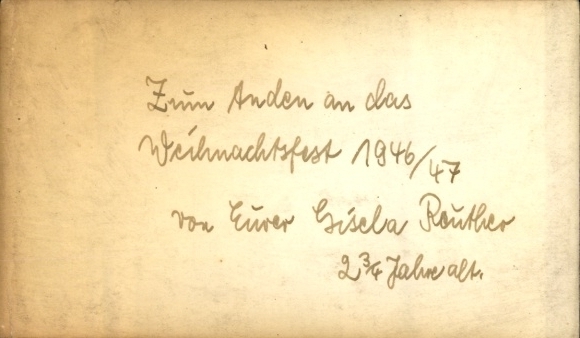 Zum Anden an das
Weihnachtsfest 1946/47
von Eurer Gisela Reuther
2 3/4 Jahre alt.